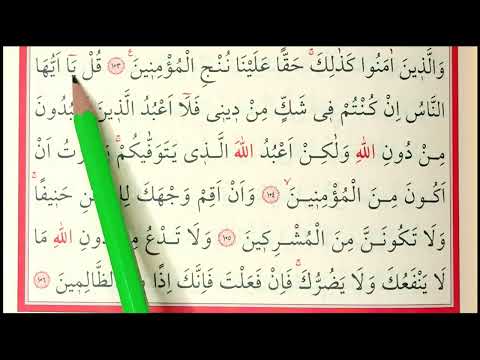 وَالَّذ۪ينَ اٰمَنُواۚ كَذٰلِكَۚ حَقًّا عَلَيْنَا نُنْجِ الْمُؤْمِن۪ينَ۟ ﴿١٠٣﴾ قُلْ يَٓا اَيُّهَا
النَّاسُ اِنْ كُنْتُمْ ف۪ي شَكٍّ مِنْ د۪ين۪ي فَلَٓا اَعْبُدُ الَّذ۪ينَ
مِنْ دُونِ اللّٰهِ وَلٰكِنْ اَعْبُدُ اللّٰهَ الَّذ۪ي يَتَوَفّٰيكُمْۚ اَنْ
اَكُونَ مِنَ الْمُؤْمِن۪ينَۙ ﴿١٠٤﴾ وَاَنْ اَقِمْ وَجْهَكَ حَن۪يفًاۚ
وَلَا تَكُونَنَّ مِنَ الْمُشْرِك۪ينَ ﴿١٠٥﴾ وَلَا تَدْعُ دُونِ اللّٰهِ مَا
لَا يَنْفَعُكَ وَلَا يَضُرُّكَۚ فَاِنْ فَعَلْتَ فَاِنَّكَ اِذًا الظَّالِم۪ينَ ﴿١٠٦﴾